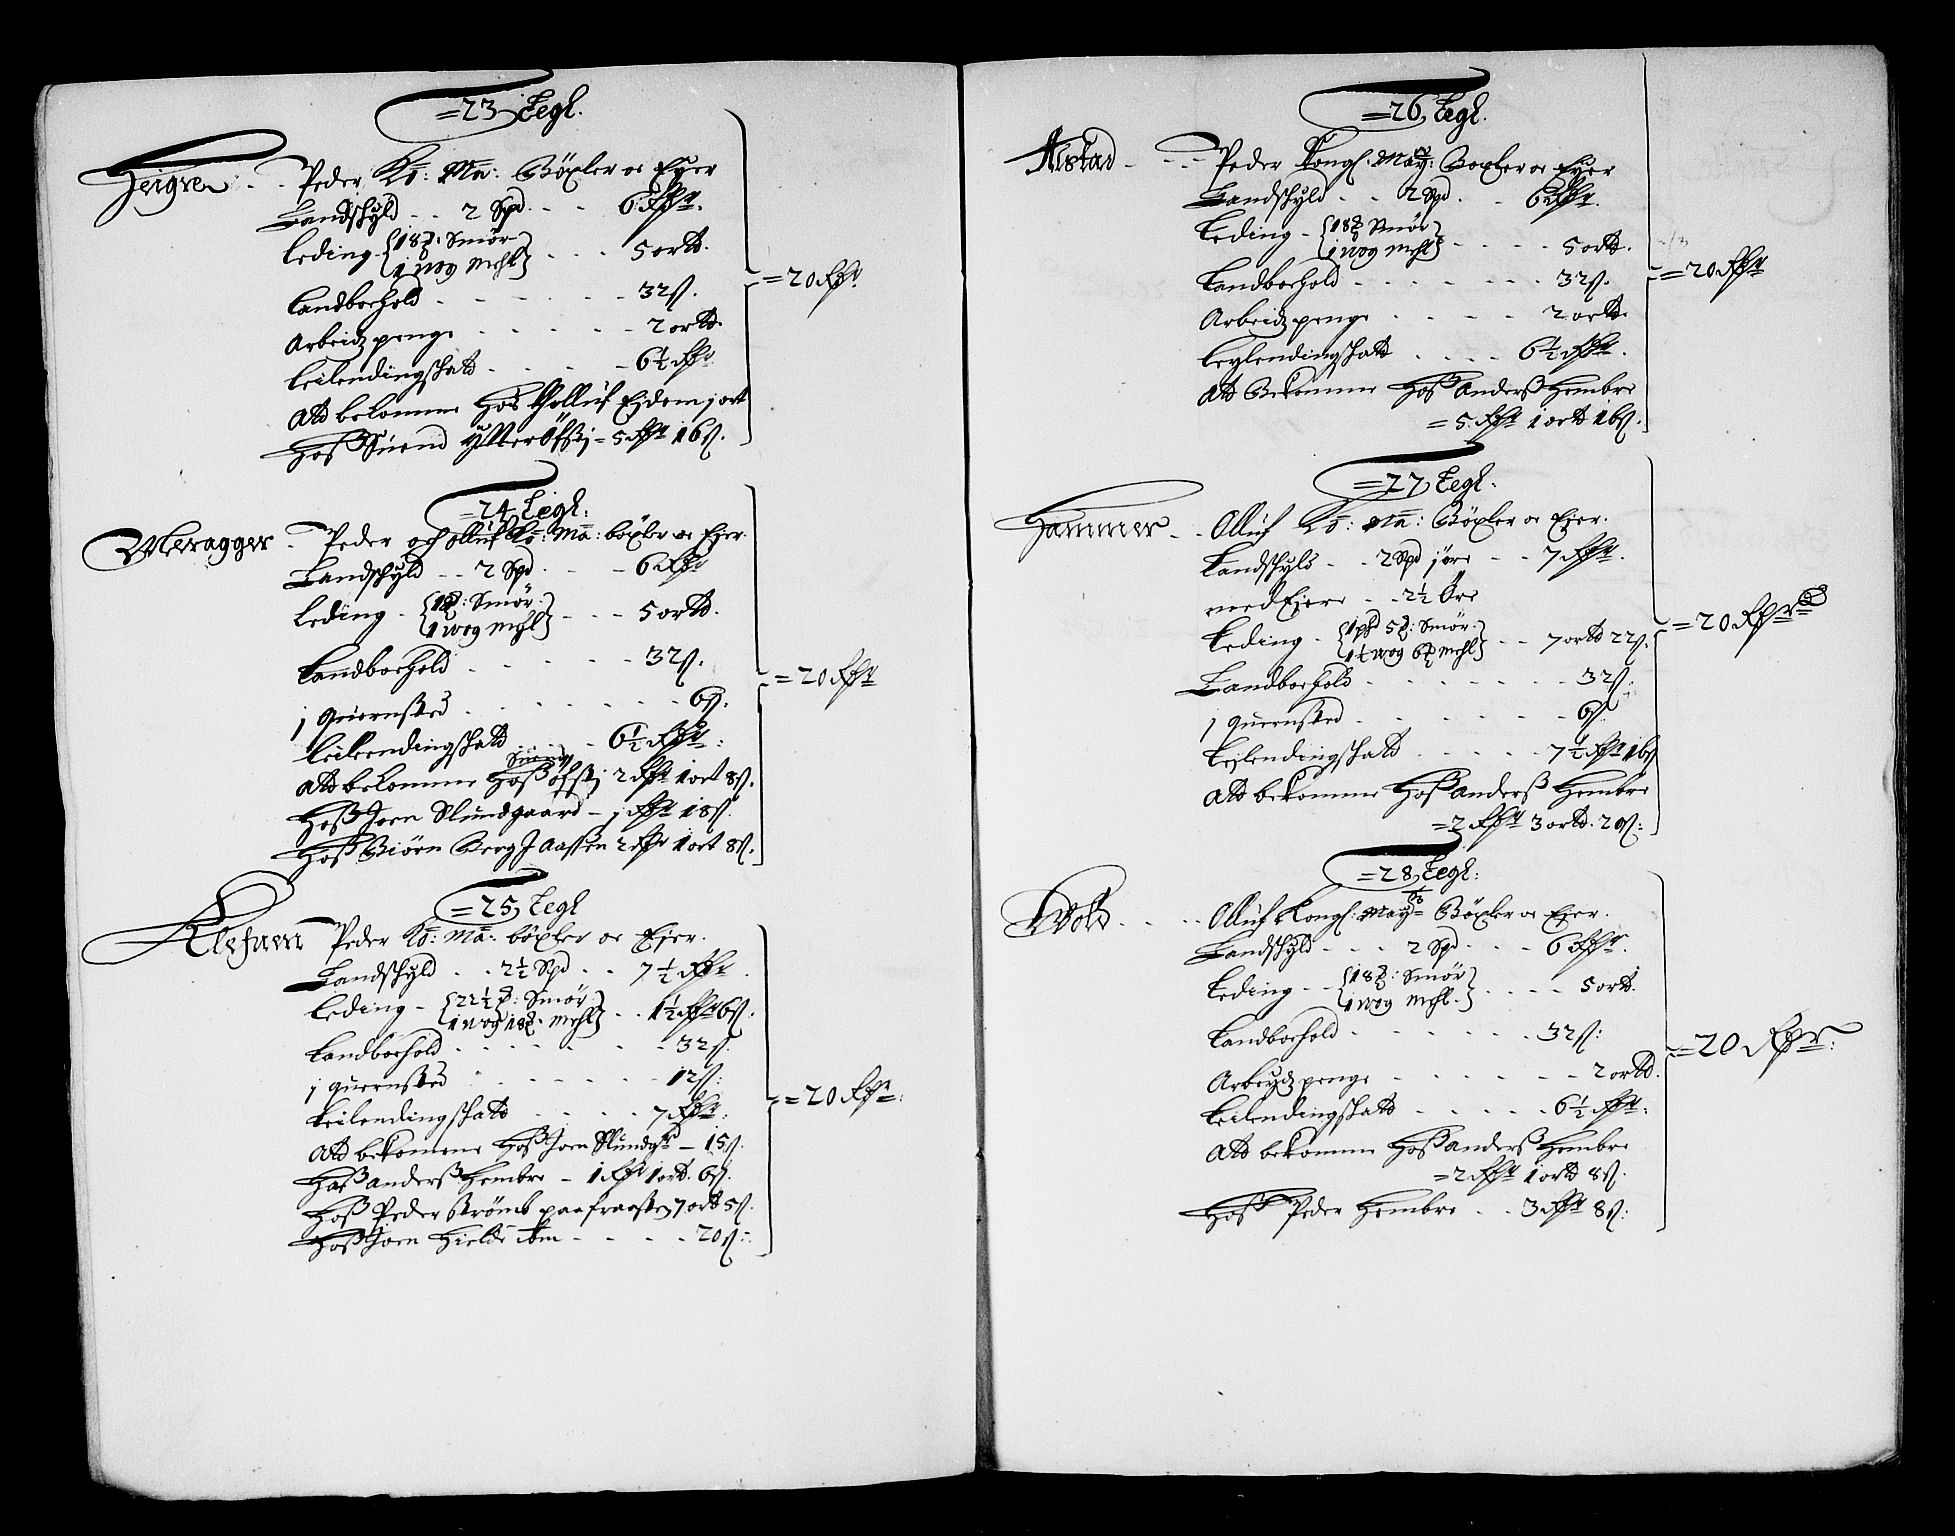 =23 Legl.
Heigre. - - Peder Ko: Ma: Böxler oc Eyer
Landschyld - - 2 Spd. - - 6 Rdr.
Leding - {18 ℔: Smör / 1 wog mehl} - - - 5 ortt.
Landboehold - - - - - - 32 ß.
Arbeidz penge - - - - - 2 ortt.
Leilendingschatt - - - - - 6½ Rdr
Att bekomme Hos Olluf Eidem j ort
Hoß Suend Ytteröfsti = 5 Rdr 16 ß.
=20 Rdr
=24 Legl:
Meragger - Peder och olluf Ko: Ma: böxler oc Ejer.
Landschyld - - 2 Spd. - - 6 Rdr
Leding - {18 ℔: Smör. / 1 wog mehl} - - - 5 ortt.
Landboehold - - - - - 32 ß.
j quernsted - - - - - - 6 ß.
Leilendingschatt - - 6½ Rdr:
Att bekomme Hoß öfsti 2 Rdr 1 ort 8 ß.
Hoß Joen Slundgaard - j Rdr 18 ß.
Hoß Biörn Berg J Aassen 2 Rdr 1 ort 8 ß.
=20 Rdr
=25 Legl
Klefuen Peder Ko: Ma: böxler oc Ejer.
Landschyld - - 2½ Spd - - 7½ Rdr.
Leding - {22½ ℔: Smör: / 1 wog 18 ℔. mehl} - - 1½ Rdr 6 ß.
Landboehold - - - - - 32 ß.
j quernsted - - - - - - 12 ß:
Leilendingschatt - - - - 7 Rdr:
Att bekomme Hoß Joen Slundgrd - 15 ß.
Hoß anderß Hembre - 1 Rdr 1 ort. 6 ß.
Hoß Peder Strömb paa fraasten 7 ort 5 ß.
Hoß Joen Hielde ibm - - - - 20 ß:
=20 Rdr:
=26 Legl.
Alstad - - - Peder Kongl. May: Boxler oc Eyer
Landschyld - - 2 Spd. - - 6 Rdr.
Leding - {18 ℔ Smör / 1 wog mehl} - - - - 5 ortt.
Landboehold - - - - - - - 32 ß.
Arbeidz penge - - - - - 2 ortt
Leylendingschatt - - - - 6½ Rdr.
Att Bekomme Hoß Anderß Hembre
= 5 Rdr 1 ortt 16 ß.
=20 Rdr
=27 Legl.
Hammer - - Olluf Ko: Ma: Böxler oc Ejer.
Landschyld - - 2 Spd j öre - - 7 Rdr.
med Ejere - - 2½ Öre
Leding - {1 pd 5 ℔: Smör. / 1½ wog 6 ℔ mehl} - - 7 ortt 22 ß.
Landboehold - - - - - - - 32 ß:
j quernsted - - - - - - 6 ß
Lejlendingschatt - - - - - 7½ Rdr 16 ß
Att bekomme Hoß anderß Hembre
=2 Rdr 3 ortt. 20 ß:
=20 Rdr
=28 Legl:
Wold - - - Olluf Kongl: Maytz Böxler oc Ejer.
Landschyld - - - 2 Spd - - - 6 Rdr.
Leding - - {18 ℔: Smör / 1 wog mehl.} - - - - 5 ortt.
Landboehold - - - - - - 32 ß:
Arbeydz penge - - - - - - 2 ortt.
Leilendingschatt - - - - - 6½ Rdr:
Att bekomme Hoß anderß Hembre
=2 Rdr 1 ortt 8 ß.
Hoß Peder Hembre - - 3 Rdr 8 ß:
=20 Rdr: